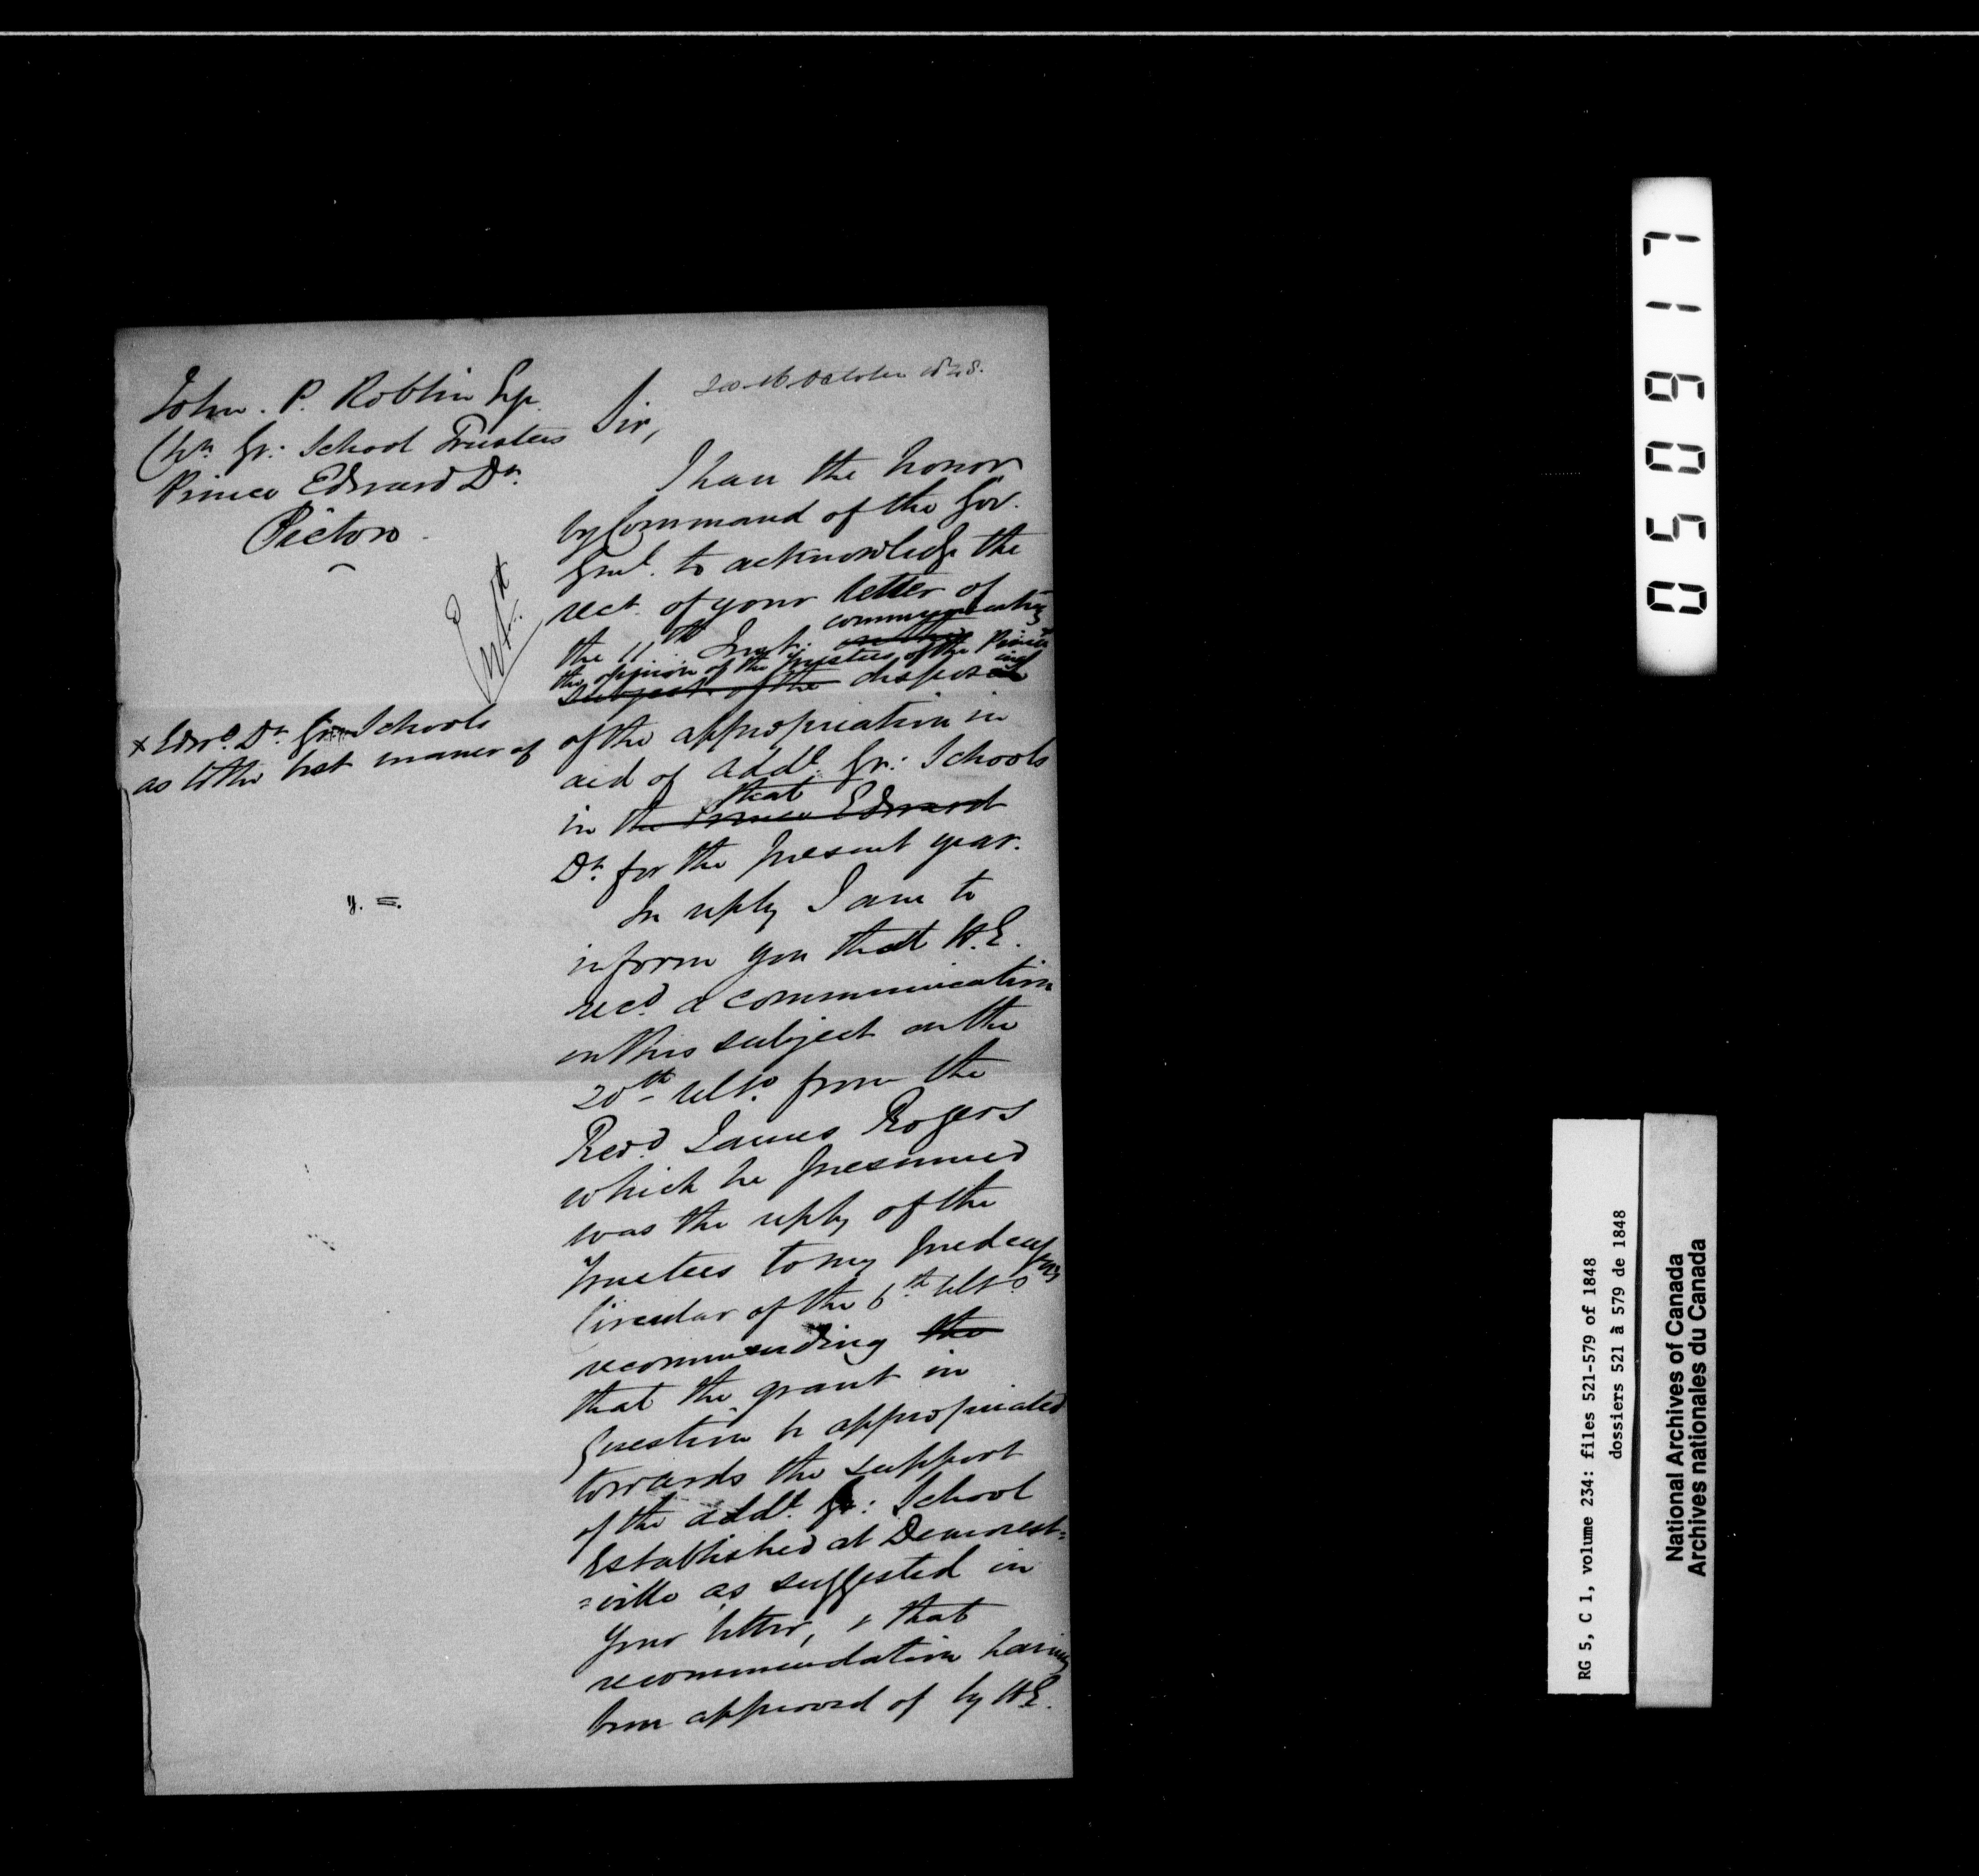 20th October 1848.
John. P. Roblin Esqr.
Chn Gr: School Trustees
Prince Edward Dt.
Picton.
Entd
Sir,
I have the honor
by Command of the Gov.
Genl. to acknowledge the
rect. of your letter of
the 11th Inst. communicating
the opinion of the Trustees of the Prince
x Edwd. Dt. Gram Schools
as to the best manner of
subject of the disposing
of the appropriation in
aid of addl. Gr: Schools
in that
the Prince Edward
Dt. for the present year.
In reply I am to
inform you that H.E.
recd. a communication
on this subject on the
20th ulto. from the
Revd. James Rogers
which he presumed
was the reply of the
Trustees to my predecessors
Circular of the 6th ulto
recommending the
that the grant in
Question be appropriated
towards the support
of the addl. Gr: School
Established at Demorest=
=ville as suggested in
your letter, & that
recommendation having
been approved of by H.E.
y. =.
050917
RG 5, C 1, volume 234: files 521-579 of 1848
dossiers 521 à 579 de 1848
National Archives of Canada
Archives nationales du Canada